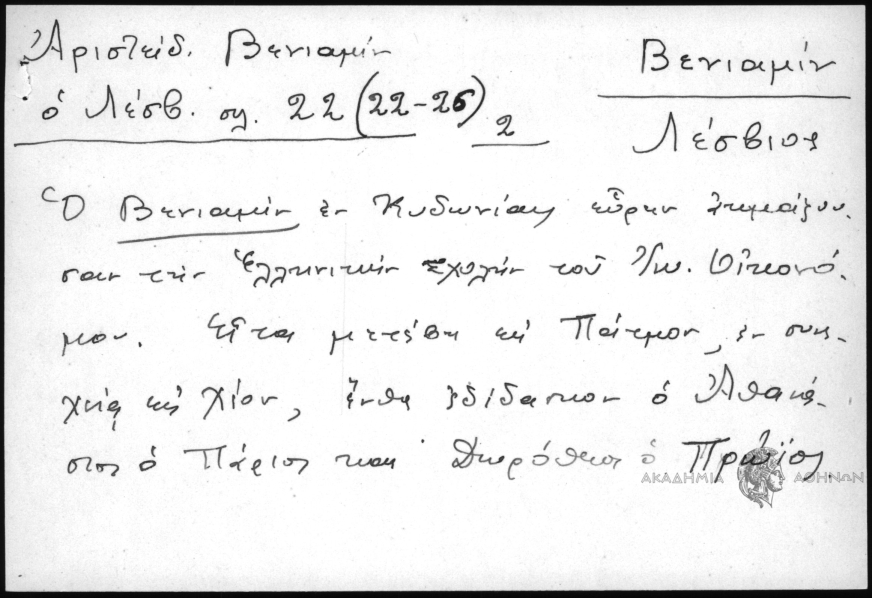 Ἀριστείδ. Βενιαμίν
ὁ Λέσβ. σελ. 22 (22-26)
2
Βενιαμίν
Λέσβιος
Ὁ Βενιαμίν ἐν Κυδωνίαις εὗρεν ἀκμάζου-
σαν τὴν Ἑλληνικὴν Σχολὴν τοῦ Ἰω. Οἰκονό-
μου. Εἶτα μετέβη εἰς Πάτμον, ἐν συνε-
χείᾳ εἰς Χίον, ἔνθα ἐδίδασκον ὁ Ἀθανά-
σιος ὁ Πάριος καὶ Δωρόθεος ὁ Πρώϊος
ΑΚΑΔΗΜΙΑ ΑΘΗΝΩΝ